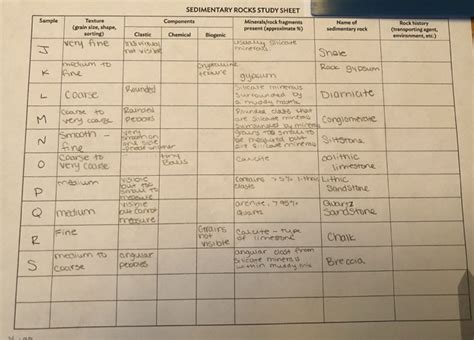 SEDIMENTARY ROCKS STUDY SHEET
Sample
Texture
(grain size, shape,
sorting)
Components
Clastic
Chemical
Biogenic
Minerals/rock fragments
present (approximate %)
Name of
sedimentary rock
Rock history
(transporting agent,
environment, etc.)
J
very fine
individual
not visible
usually silicate
minerals
Shale
K
medium to
fine
crystalline
texture
gypsum
Rock gypsum
L
Coarse
Rounded
Silicate minerals
surrounded by
a muddy
Diamictite
M
Coarse to
very coarse
Rounded
pebbles
Rounded clasts that
are silicate minerals
surrounded by minerals
Conglomerate
N
Smooth -
fine
very
smooth on
one side
grains too small to
be measured but
are silicate minerals
Siltstone
O
Coarse to
very coarse
tiny
Balls
Calcite
oolithic
limestone
P
medium
visible
but too
small to
measure
Contains >5% lithic
clasts
Lithic
Sandstone
Q
medium
visible
but cannot
measure
arenite >95%
quartz
Quartz
Sandstone
R
Fine
Grains
not
visible
Calcite - type
of limestone
Chalk
S
medium to
coarse
angular
pebbles
angular clast from
silicate minerals
within muddy mix
Breccia